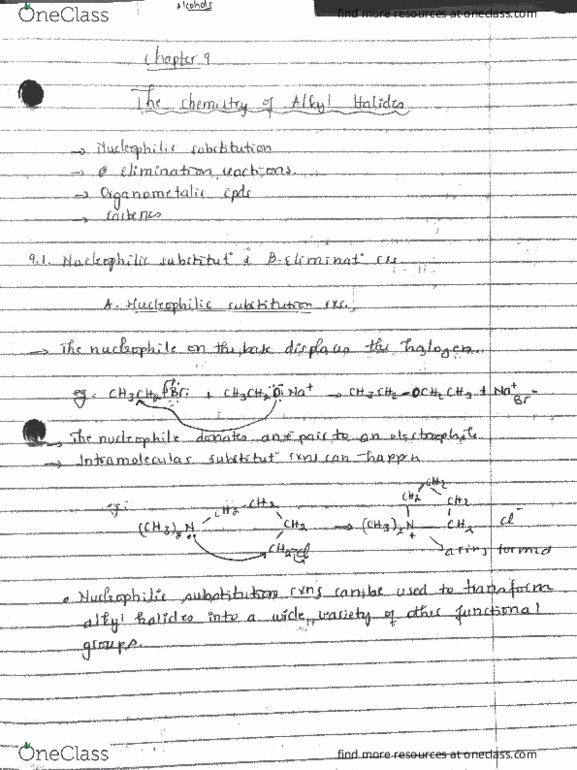 Alcohols
OneClass
find more resources at oneclass.com
Chapter 9
The chemistry of Alkyl Halides
→ Nucleophilic substitution
→ elimination reactions.
→ Organometalic cpds
→
9.1. Nucleophilic substitut & β-Eliminat rxs
A. Nucleophilic substitution rxs.
→ The nucleophile on the base displaces the halogen.
eg. CH3CH2-Br + CH3CH2O Na+ → CH3CH2-OCH2CH3 + Na+ Br-
→ The nucleophile donates an e pair to an electrophile.
→ Intramolecular substitut rxns can happen
CH2
CH2 CH2 CH2 CH2
(CH3)2N CH2 → (CH3)2N+ CH2 Cl-
CH2-Cl → a ring formed
• Nucleophilic substitution rxns can be used to transform
alkyl halides into a wide variety of other functional
groups.
OneClass
find more resources at oneclass.com